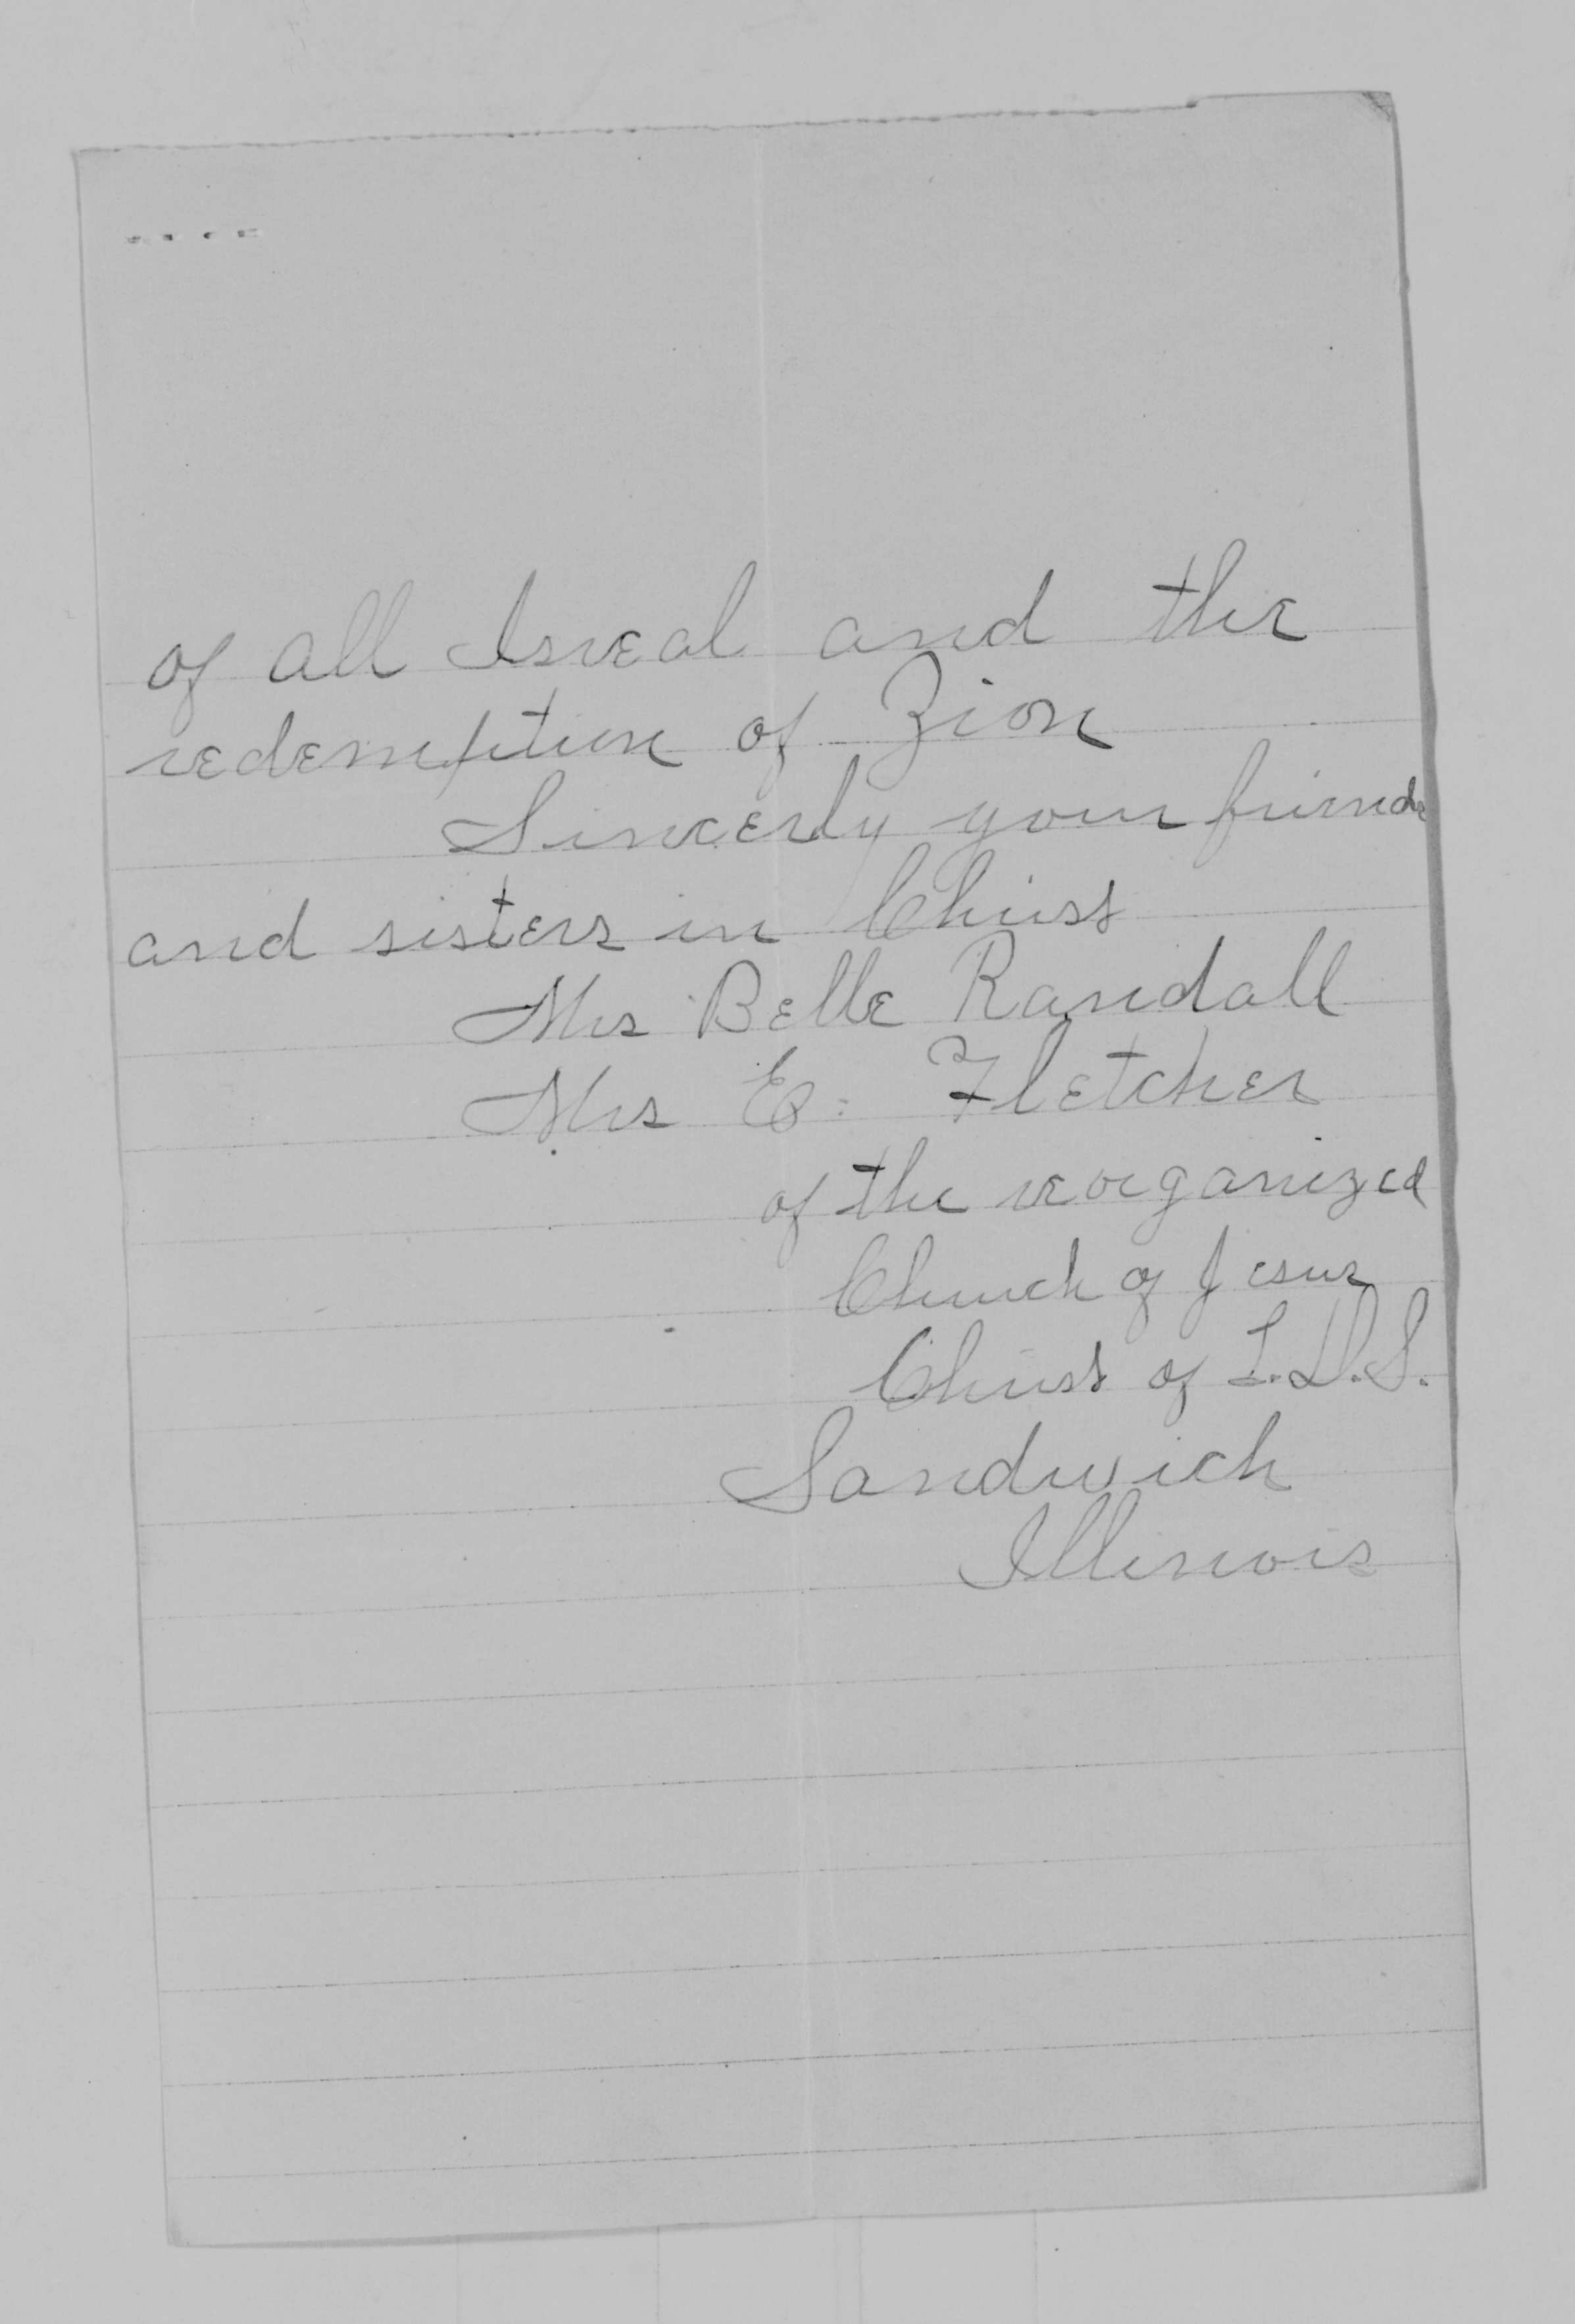 of all Isreal and the
redemption of Zion
Sincerly your friends
and sisters in Christ
Mrs Belle Randall
Mrs E. Fletcher
of the reorganized
Church of Jesus
Christ of L.D.S.
Sandwich
Illinois